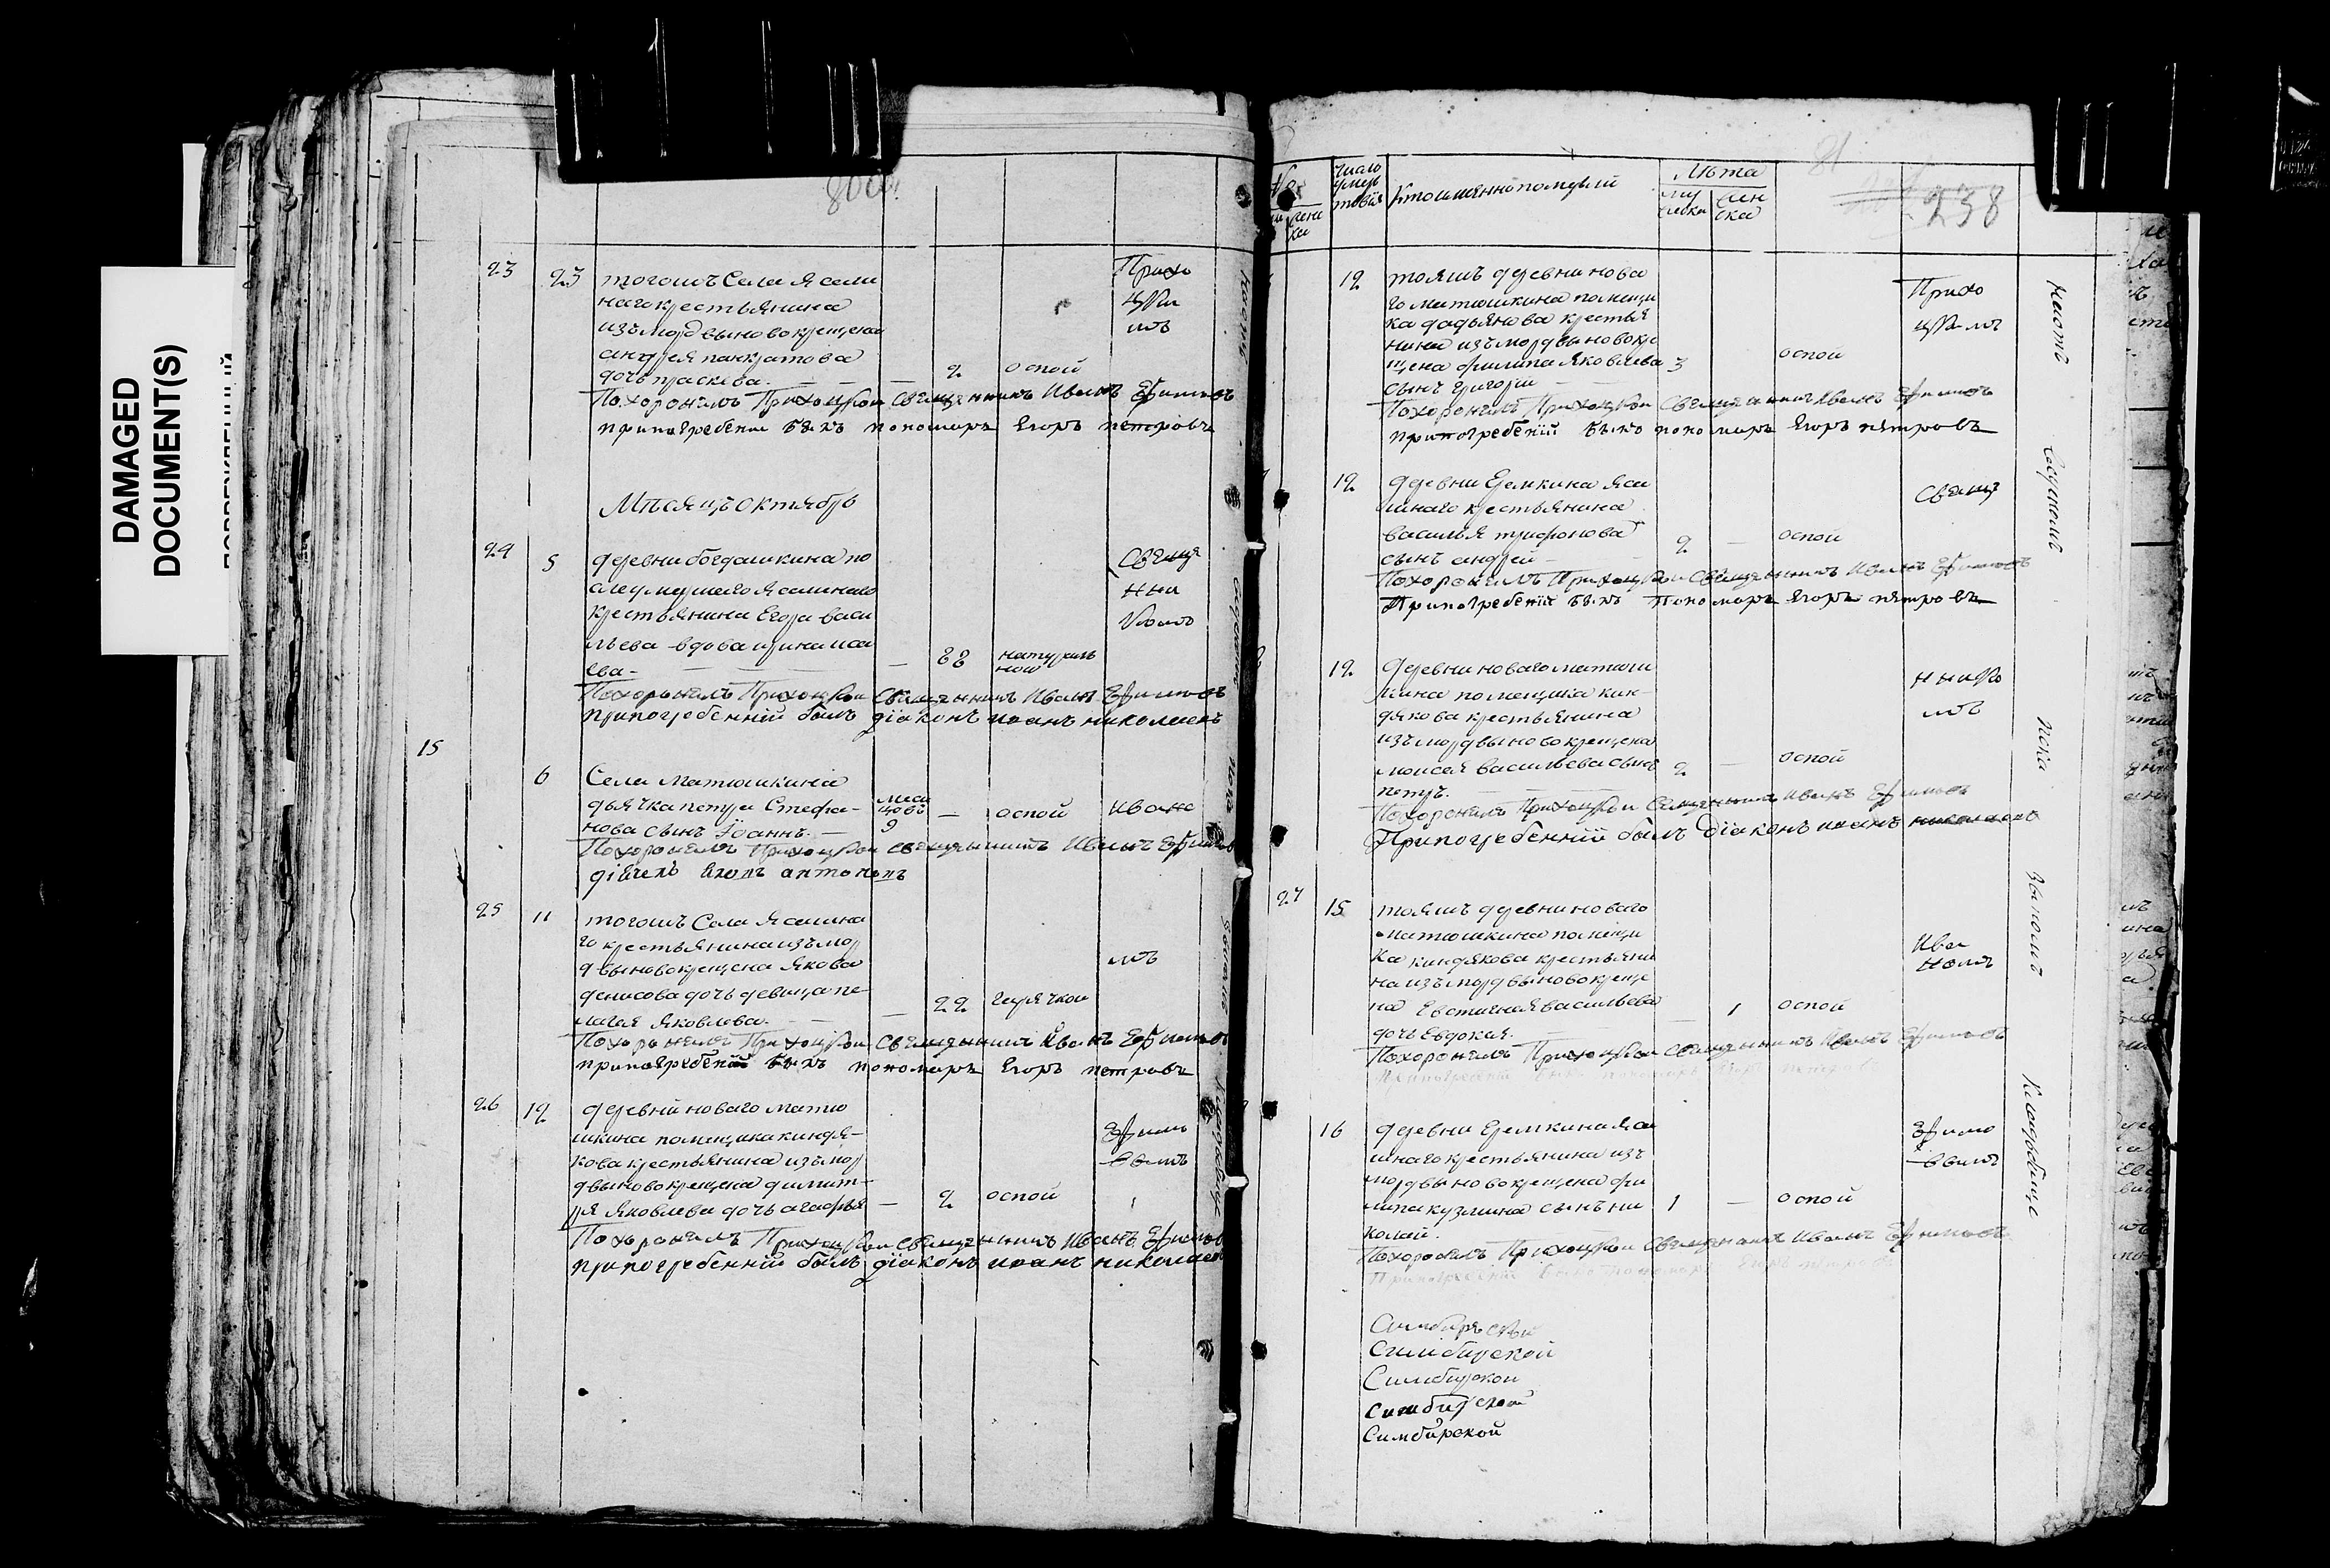 DAMAGED
DOCUMENT(S)
800
23
23
тогожъ Села Ясаш
наго крестьянина
изъ мордвы новокрещена
андрея панкратова
дочь праскева.
2
оспой
Прихо
цки
мъ
Похоронилъ Приходкои Священникъ Иванъ Ефимовъ
припогребении былъ пономарь Егоръ петровъ
Мѣсяцъ октябрь
24
5
деревни богдашкина по
слеумершаго Ясашнаго
крестьянина Егора васи
льева вдова ирина иса
ева
88
натураль
ною
Свяще
нни
комъ
Похоронилъ Приходкои Священникъ Иванъ Ефимовъ
припогребенніи былъ діаконъ иванъ николаевъ
15
6
Села Матюшкина
дьячка петра Стефа-
нова сынъ Іоаннъ.
меся
цовъ
9
оспой
Ивано
Похоронилъ Приходкои священникъ Иванъ Ефимовъ
антоновъ
25
11
тогожъ Села Ясашна
го крестьянина изъ мор
двы новокрещена Якова
денисова дочь девица пе-
лагея Яковлева.
22
горячкои
мъ
Похоронилъ Приходкои Священникъ Иванъ Ефимовъ
припогребеніи былъ пономарь Егоръ петровъ
26
12
деревни новаго матю
шкина помещика киндя-
кова крестьянина изъ мор
двы новокрещена димит-
рея Яковлева дочь агафья
2
оспой
Ефимо
вымъ
Похоронилъ Приходкои священникъ Иванъ Ефимовъ
припогребенніи былъ діаконъ иванъ николаевъ
число
умер
ртвыя
Кто имянно померли
Лѣта
му
жеска
жен
ска
81
238
12
тояжъ деревни нова
го матюшкина помещи
ка дадьянова крестья
нина изъ мордвы новокре
щена филипа Яковлева
сынъ григореи
3
оспой
Прихо
цкимъ
Похоронилъ Приходкои Священникъ Иванъ Ефимовъ
припогребеніи былъ пономарь Егоръ петровъ
12
деревни Еремкина Яса
шнаго крестьянина
василья трифонова
сынъ андрей
2
оспой
Свяще
Похоронилъ Приходкои Священникъ Иванъ Ефимовъ
Припогребеніи былъ пономарь Егоръ петровъ
12
деревни новаго матюш
кина помещика кин-
дякова крестьянина
изъ мордвы новокрещена
моисея васильева сынъ
петръ.
2
оспой
ннико
мъ
Похоронилъ Приходкои Священникъ Иванъ Ефимовъ
Припогребенніи былъ Діаконъ иванъ николаевъ
27
15
тояжъ деревни новаго
матюшкина помещи
ка киндякова крестьяни
на изъ мордвы новокреще
на Евстигнея васильева
дочь Евдокея.
1
оспой
Ива
номъ
Похоронилъ Приходкои священникъ Иванъ Ефимовъ
припогребеніи былъ пономарь Егоръ петровъ
16
деревни Еремкина Яса
шнаго крестьянина изъ
мордвы новокрещена фи
липа кузмина сынъ ни
колай.
1
оспой
Ефимо
вымъ
Похоронилъ Приходкои Священникъ Иванъ Ефимовъ
Припогребеніи былъ пономарь Егоръ петровъ
Симбирской
Симбирской
Симбирской
Симбирской
Симбирской